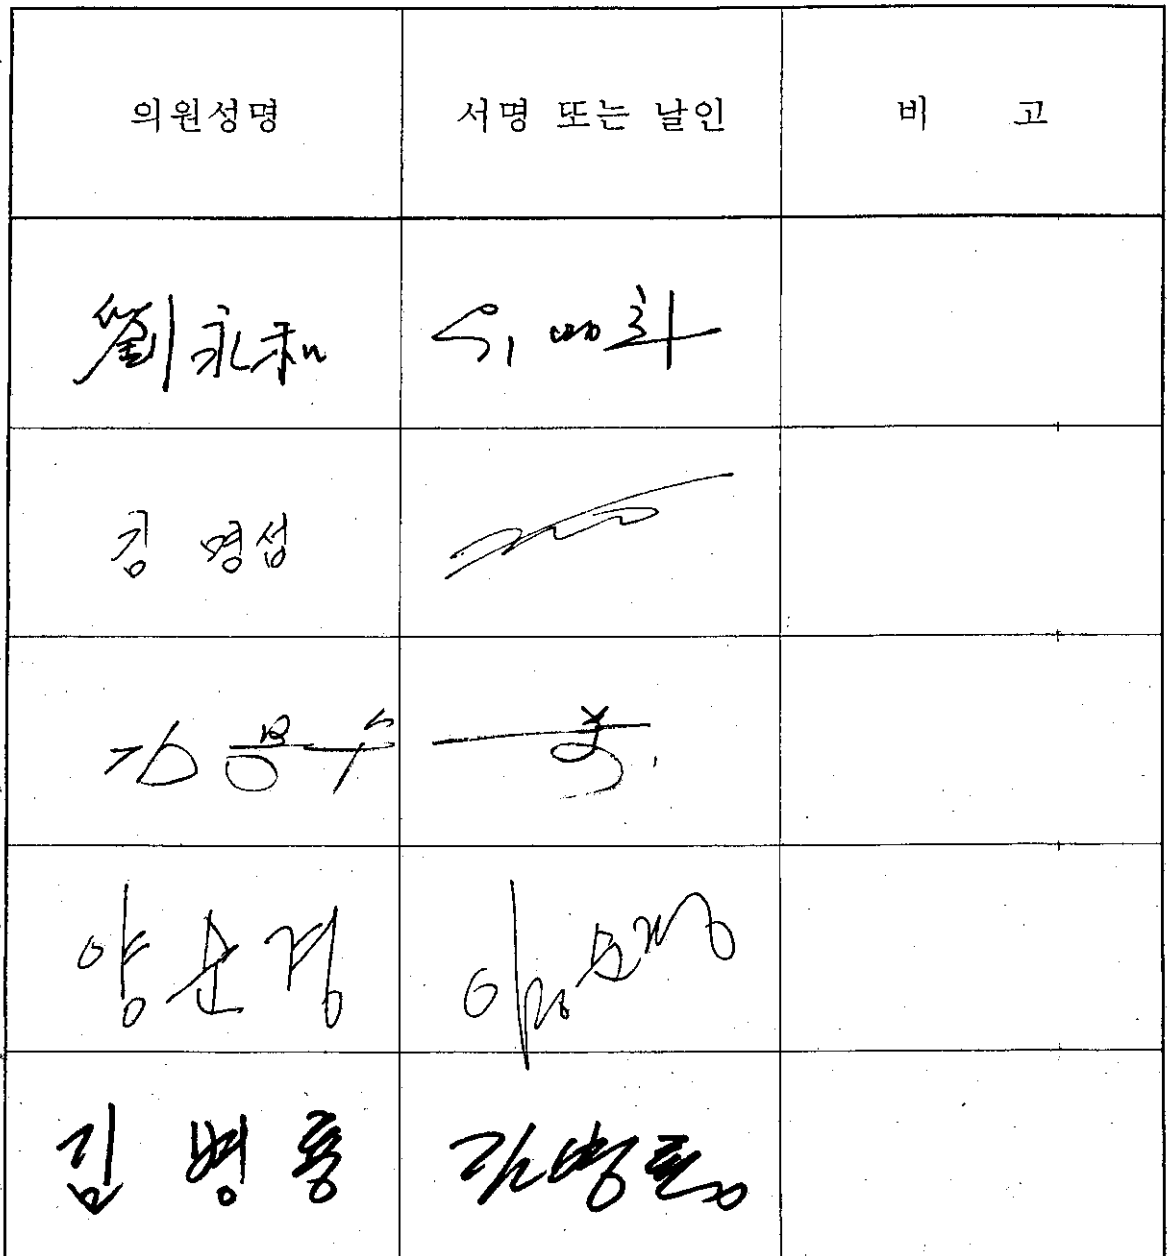 의원성명 서명 또는 날인 비 고
劉永和 유영화
김 명섭
김용수
양순경 양순경
김 병룡 김병룡